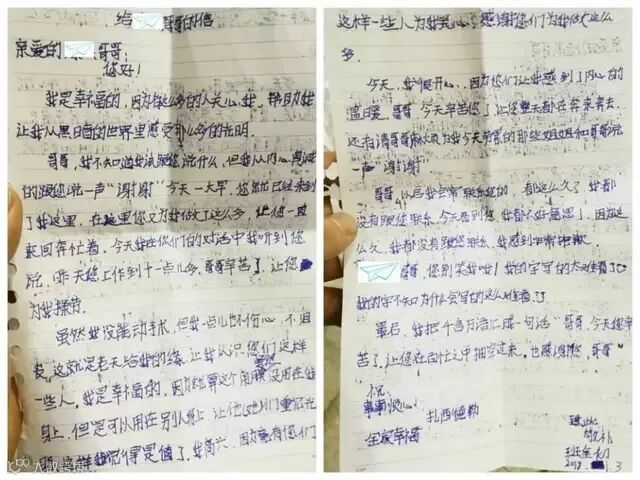 给 哥哥的信
亲爱的 哥哥:
您好!
我是幸福的,因为有这么多的人关心我,帮助我
让我从黑暗的世界里感受那么多的光明。
哥哥,我不知道我该跟您说什么,但我从内心真诚
的跟您说一声“谢谢”今天一大早,您就已经来到
了我这里,在这里您又为我做了这么多,让您一直
来回奔忙着,今天我在你们的对话中我听到您
说,昨天您上作到十一点几多,哥哥辛苦了,让您
为我操劳。
虽然我没能动手术,但我一点儿也不伤心,不沮
丧,这就是老天给我的缘,让我认识您们这样
一些人,我是幸福的,因为就算这个 没用在我
身上,但是可以用在别人身上,让他她们重见光
明,这样我觉得是值了,我高兴,因为能有您们
这样一些人为我关心,感谢您们为我做这么
多。
今天,我很开心,因为你们让我感到了内心的
温暖,哥哥,今天辛苦您了让您整天都在奔来奔去,
还有请哥哥 为我今天 的那些姐姐和哥哥说
一声“谢谢”
哥哥 以后我会常联系您的,都这么久了我都
没有跟您联系,今天看到您,我都不好意思了,因为这
么久,我都没有跟您联系,我感到非常抱歉
哥哥,您别笑我啦!我的字写的太难看了
我的字不知为什么会写的这么难看??
最后,我把千言万语汇成一句话“哥哥,今天您辛
苦了,让您在百忙之中抽空过来,也感谢您,哥哥”
祝:
事事顺心! 扎西德勒
全家幸福 此
敬礼
2018 3
大众跨境